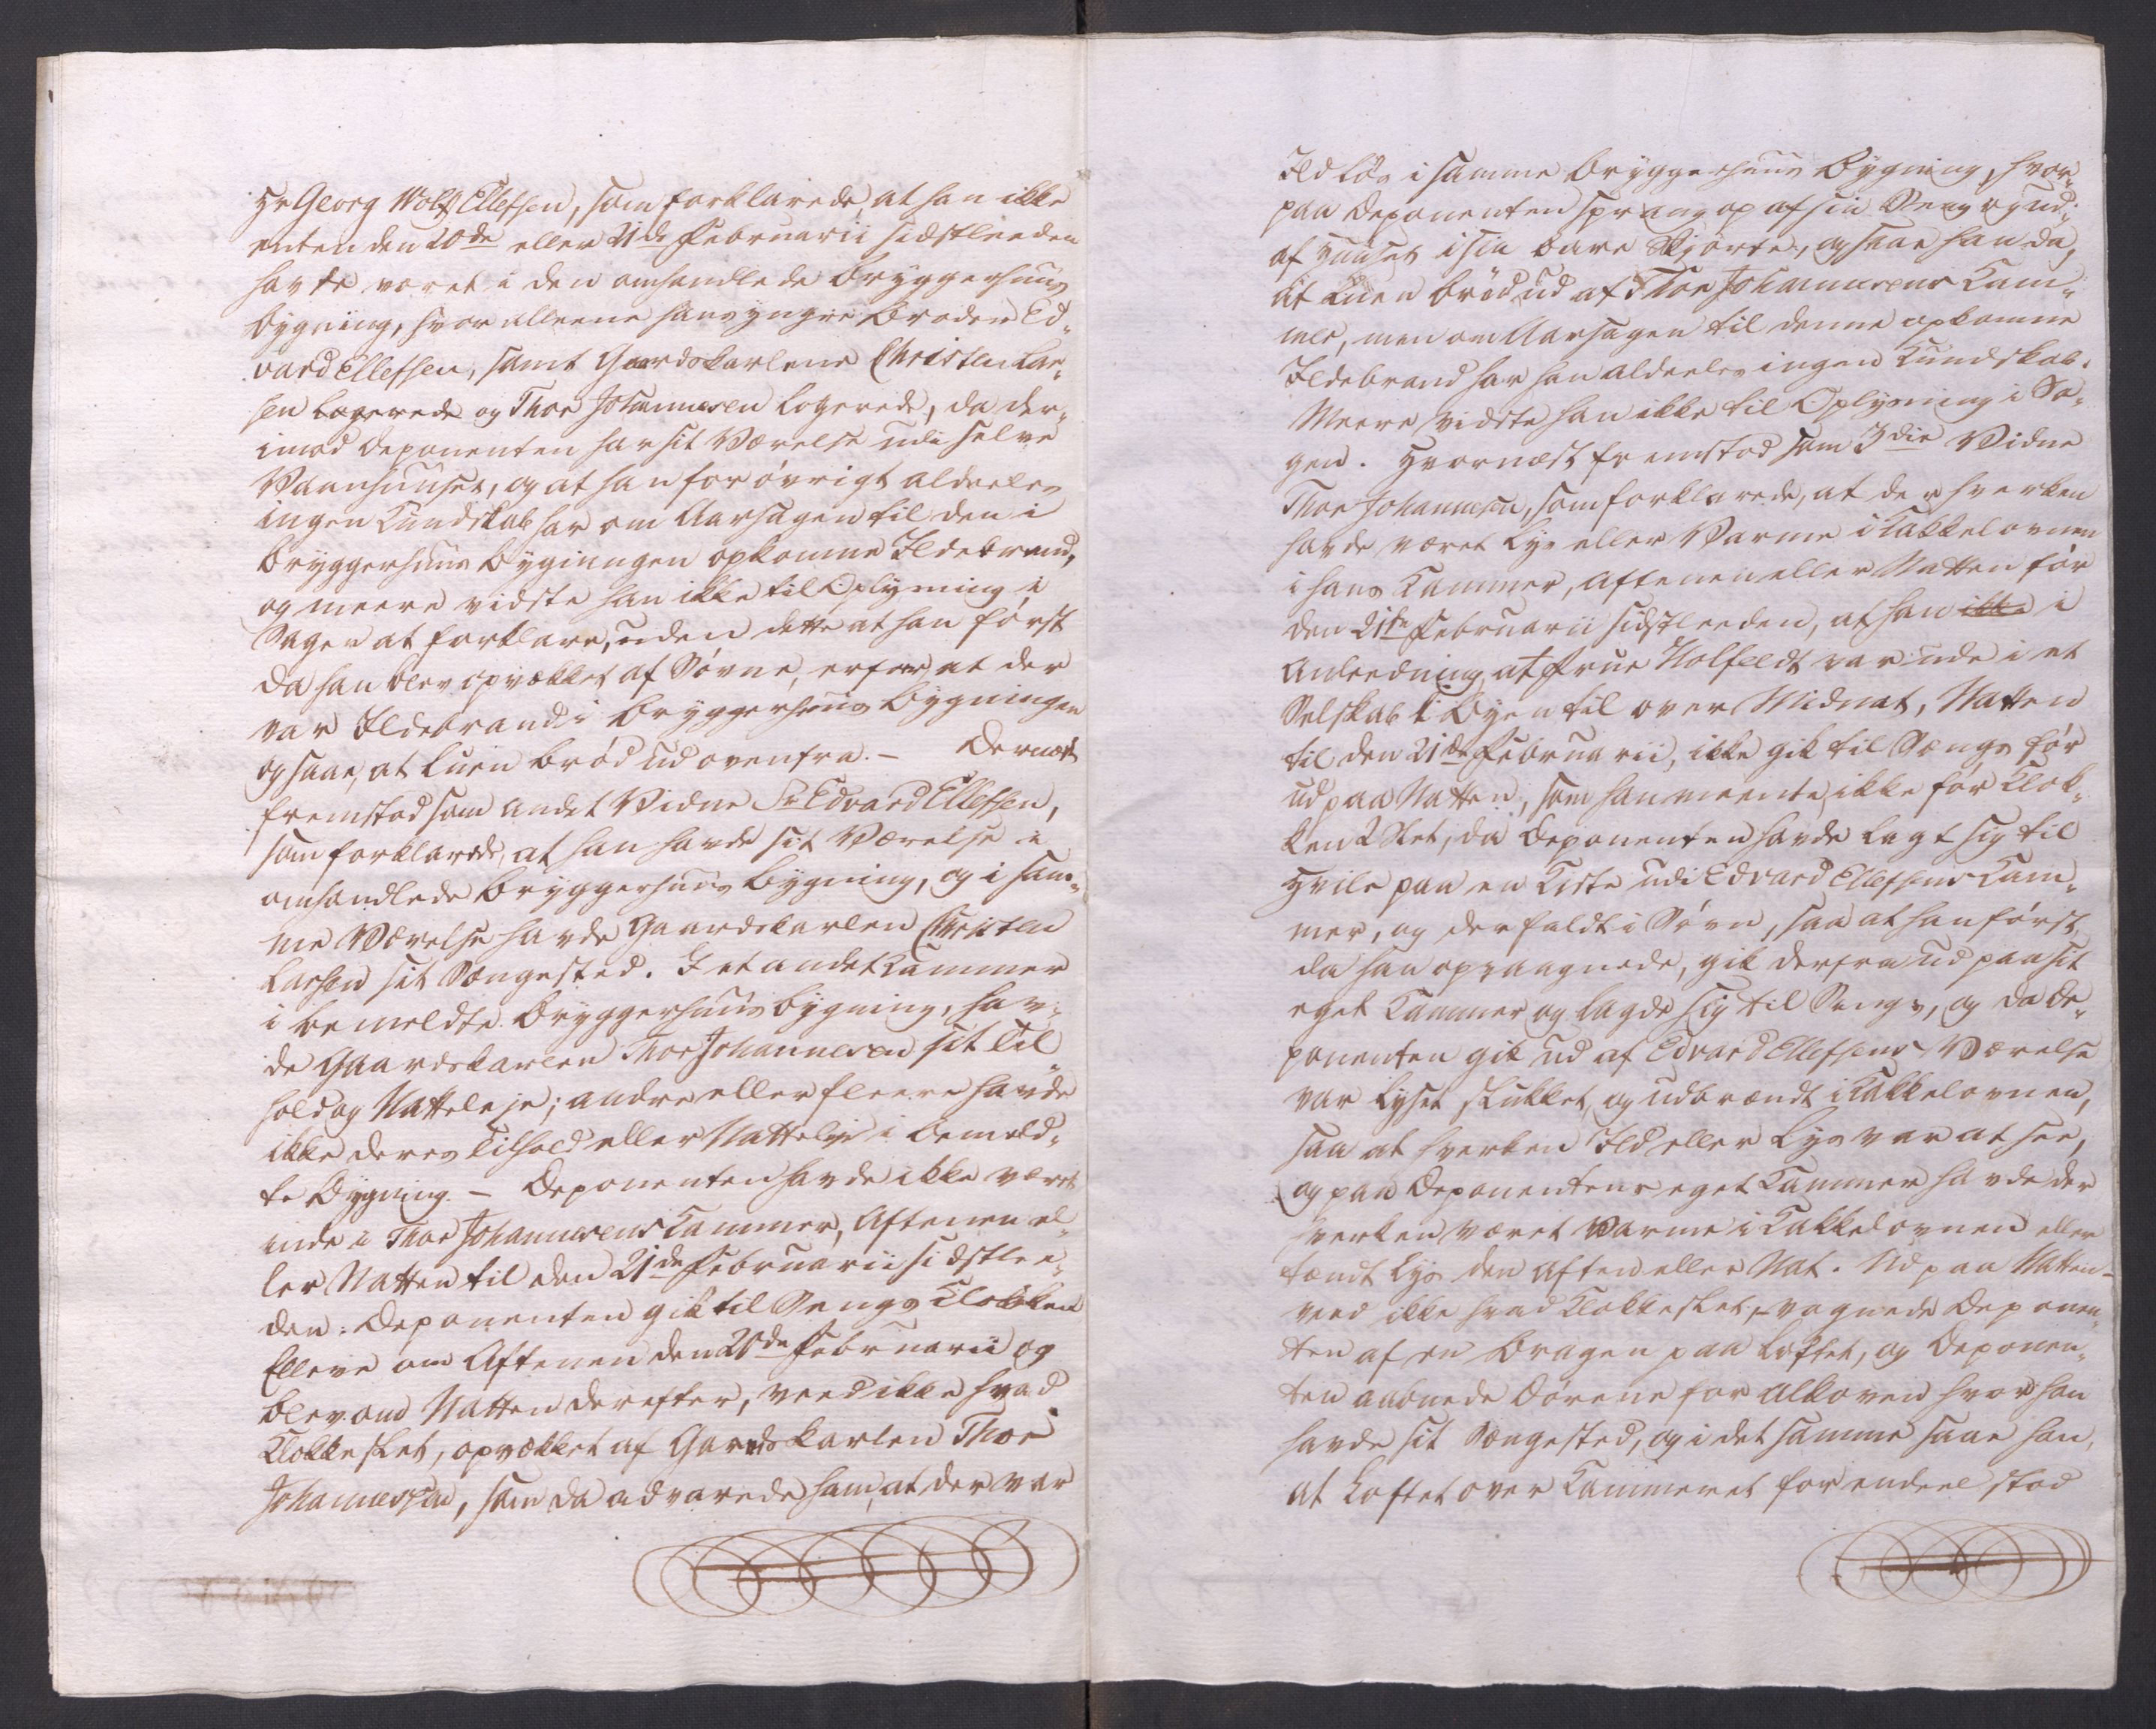 Hr Georg Wolf Ellefsen, som forklarede at han ikke
enten den 20de eller 21de Februarii sidstleeden
havde været i den omhandlede Bryggerhuus
bygning, hvor alleene hans yngre Broder Ed„
vard Ellefsen, samt Gaardskarlene Christen Lar„
sen logerede og Thor Johannesen logerede, da der„
imod Deponenten har sit Værelse udi selve
Vaanhuuset, og at han for øvrigt aldeeles
ingen Kundskab har om Aarsagen til den i
Bryggerhuus Bygningen opkomne Ildebrand,
og meere vidste han ikke til Oplysning i
Sagen at forklare, uden dette at han først
da han blev opvækket af Søvne, erfoer at der
var Ildebrand i Bryggerhuus Bygningen
og saae, at Luen brød ud ovenfra. — Dernæst
fremstod som andet Vidne Sr Edvard Ellefsen,
som forklarede, at han havde sit Værelse i
omhandlede Bryggerhuus Bygning, og i sam„
me Værelse havde Gaardskarlen Christen
Larsen sit Sængested. I et andet Kammer
i bemeldte Bryggerhuus bygning, hav„
de Gaardskarlen Thor Johannesen sit Til
hold og Natteleje; andre eller fleere havde
ikke deres Tilhold eller Natteleje i bemeld„
te Bygning. — Deponenten havde ikke været
inde i Thor Johannesens Kammer, Aftenen el„
ler Natten til den 21de Februarii sidstlee„
den. Deponenten gik til Sengs Klokken
Elleve om Aftenen den 20de Februarii og
blev om Natten derefter, veed ikke hvad
Klokkeslet, opvækket af Gaardskarlen Thor
Johannesen, som da advarede ham, at der var
Ild løs i samme Bryggerhuus Bygning, hvor„
paa Deponenten sprang op af sin Seng og ud
af Huuset i sin bare Skjorte, og saae han da,
at Luen brød ud af Thor Johannesens Kam„
mer, men om Aarsagen til denne opkomne
Ildebrand har han aldeeles ingen Kundskab.
Meere vidste han ikke til Oplysning i Sa„
gen. Hvornæst fremstod som 3die Vidne
Thor Johannesen, som forklarede, at der hverken
havde været Lys eller Varme i Kakkelovnen
i hans Kammer, Aftenen eller Natten før
den 21de Februarii sidstleeden, at han ikke i
Anleedning at Frue Holfeldt var ude i et
Selskab i Byen til over Midnat, Natten
til den 21de Februarii, ikke gik til Sængs før
ud paa Natten, som han meente ikke før Klok„
ken 2 Slet, da Deponenten havde lagt sig til
Hvile paa en Kiste udi Edvard Ellefsens Kam„
mer, og der faldt i Søvn, saa at han først,
da han opvaagnede, gik derfra ud paa sit
eget Kammer og lagde sig til Sengs, og da De„
ponenten gik ud af Edvard Ellefsens Værelse
var Lyset slukket, og udbrændt i Kakkelovnen,
saa at hverken Ild eller Lys var at see,
og paa Deponentens eget Kammer havde der
hverken været Varme i Kakkelovnen eller
tændt Lys den Aften eller Nat. Ud paa Natten —
veed ikke hvad Klokkeslet, — vognede Deponen„
ten af en Bragen paa Loftet, og Deponen„
ten aabnede Dørene for Alkoven hvor han
havde sit Sængested, og i det samme saae han,
at Loftet over Kammeret for endeel stod